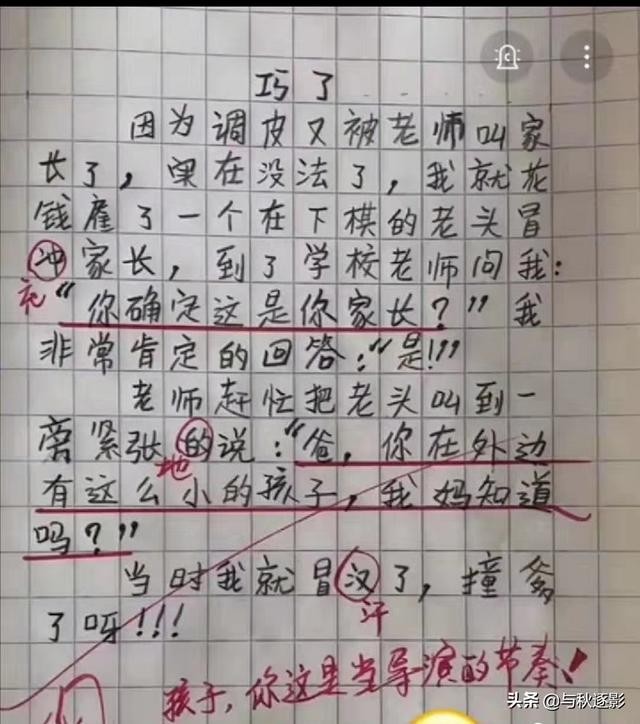 巧了
因为调皮又被老师叫家
长了，实在没法了，我就花
钱雇了一个在下棋的老头冒
冲家长，到了学校老师问我：
充
“你确定这是你家长？”我
非常肯定的回答：“是!!!”
老师赶忙把老头叫到一
旁紧张的说：“爸，你在外边
地
有这么小的孩子，我妈知道
吗？”
当时我就冒汉了，撞爹
汗
了呀!!!
孩子，你这是当导演的节奏！
头条 @与秋逐影